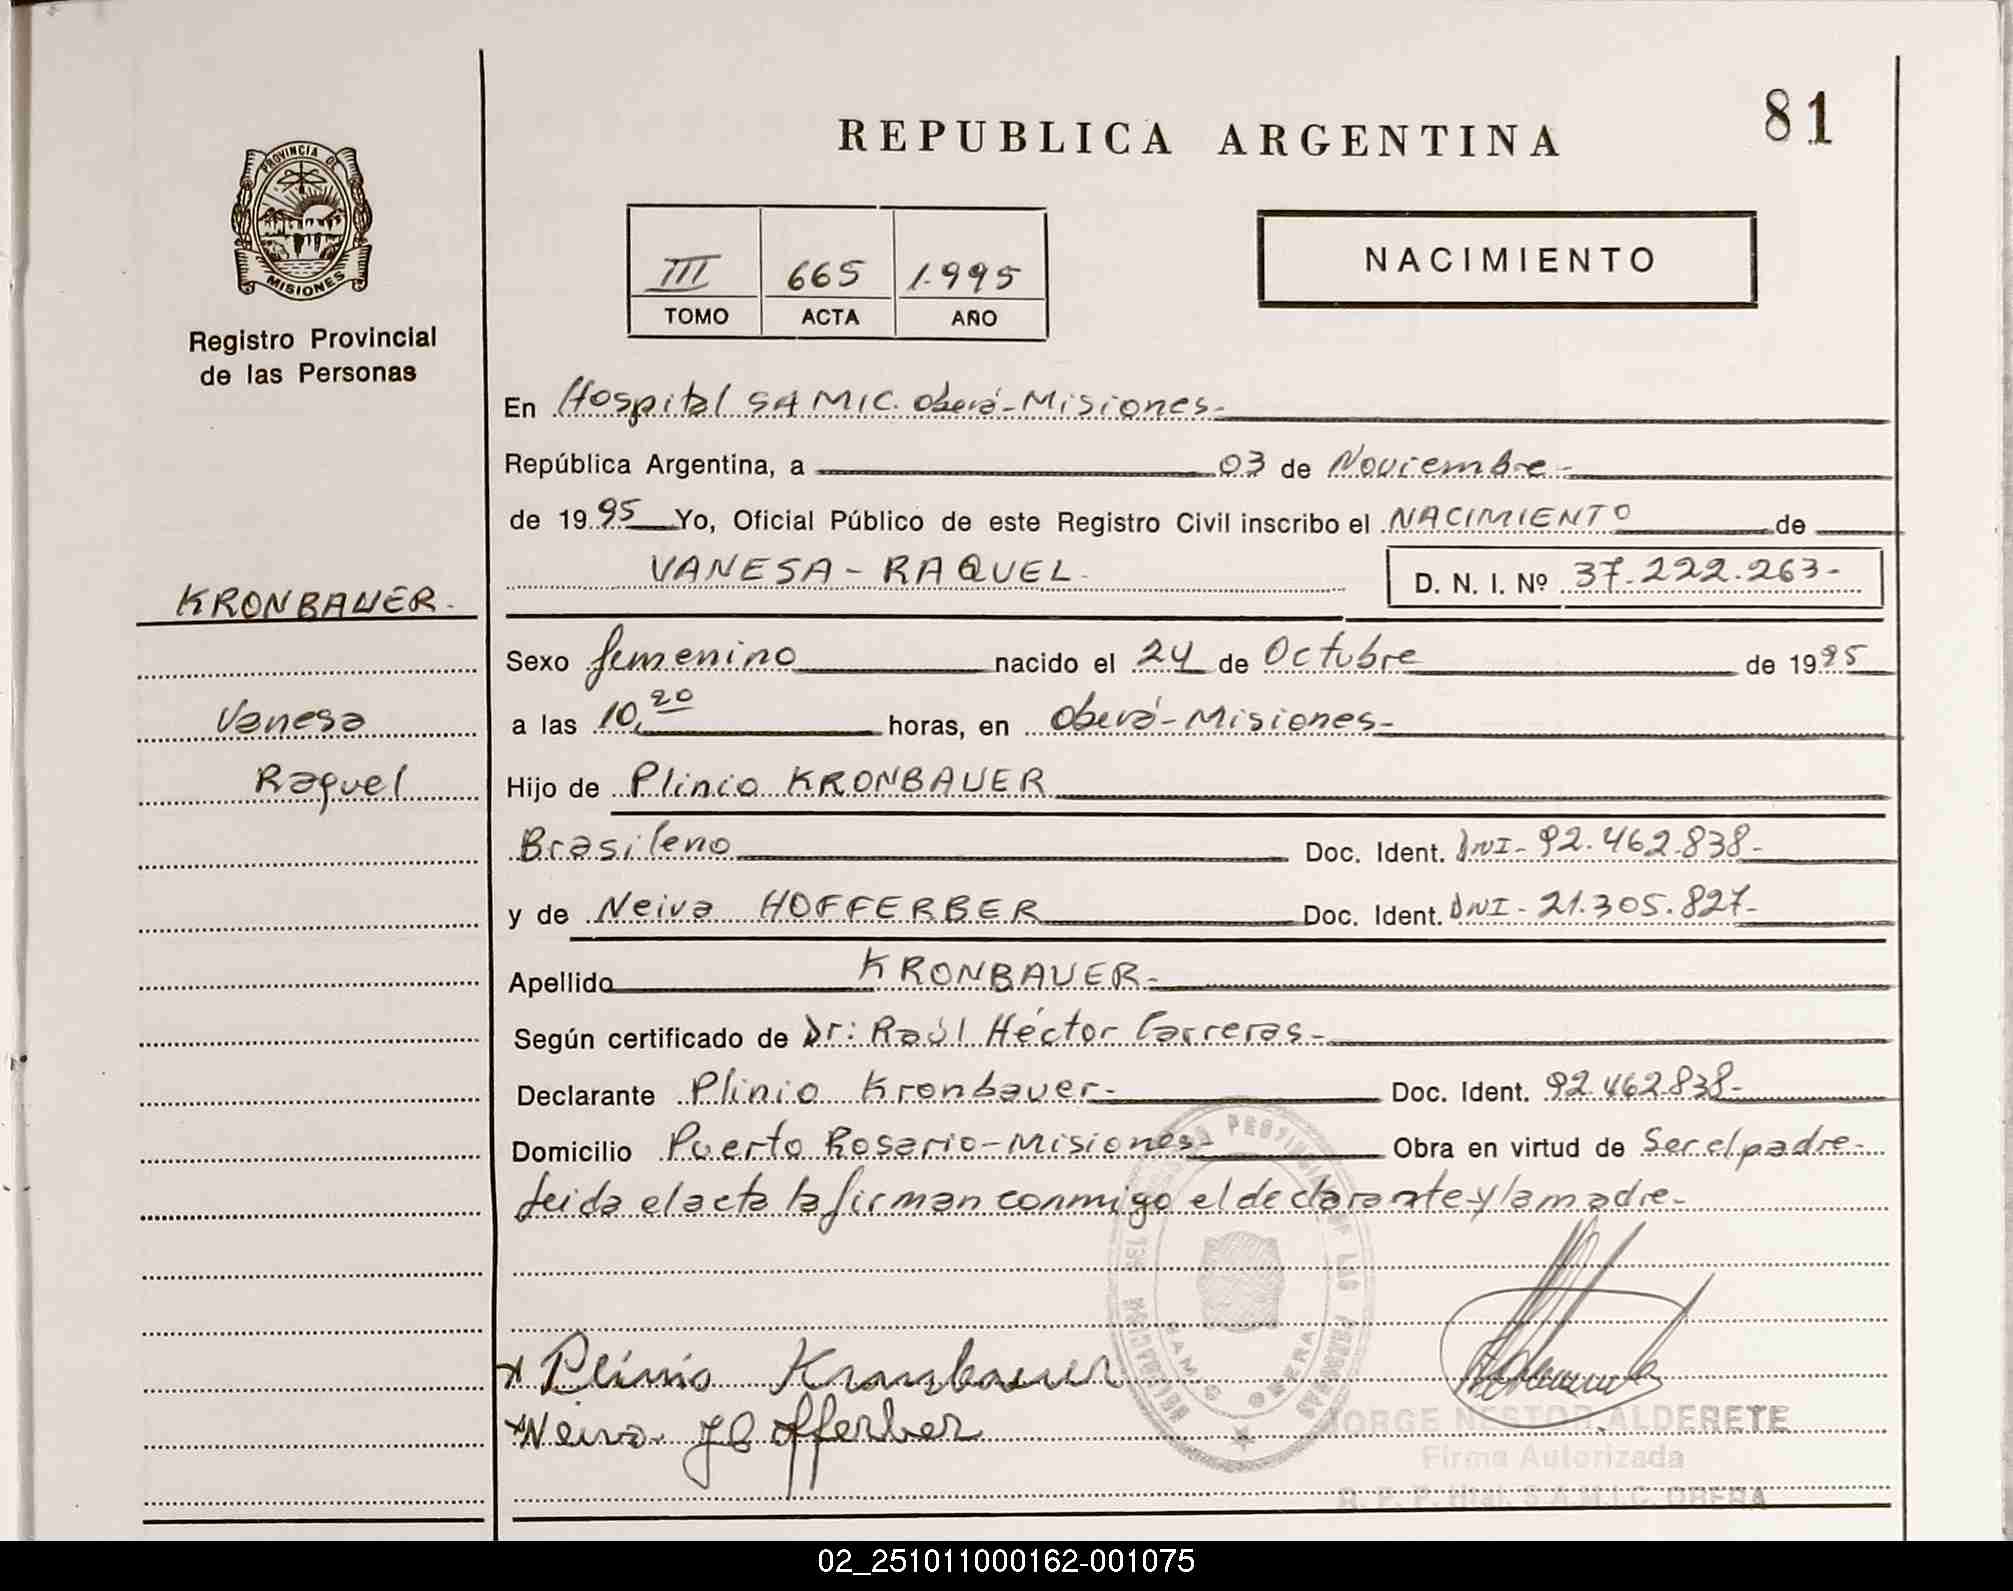 81
REPUBLICA ARGENTINA
PROVINCIA DE
MISIONES
Registro Provincial
de las Personas
III 665 1.995
TOMO ACTA AÑO
NACIMIENTO
En Hospital SAMIC. Oberá-Misiones-
República Argentina, a 03 de Noviembre-
de 1995 Yo, Oficial Público de este Registro Civil inscribo el NACIMIENTO de
VANESA-RAQUEL- D. N. I. Nº 37.222.263-
KRONBAUER-
Sexo femenino nacido el 24 de Octubre de 1995
Vanesa
a las 10,20 horas, en Oberá-Misiones-
Raquel
Hijo de Plinio KRONBAUER
Brasileno Doc. Ident. DNI-92.462.838-
y de Neiva HOFFERBER Doc. Ident. DNI-21.305.827-
Apellido KRONBAUER-
Según certificado de Dr: Raúl Héctor Carreras-
Declarante Plinio Kronbauer- Doc. Ident. 92.462.838-
Domicilio Puerto Rosario-Misiones- Obra en virtud de Ser el padre-
Leida el acta la firman conmigo el declarante y la madre-
Plinio Kronbauer
Neiva Hofferber
OBERA
JORGE NESTOR ALDERETE
Firma Autorizada
R. P. P. Htal. S.A.M.I.C. OBERA
02_251011000162-001075